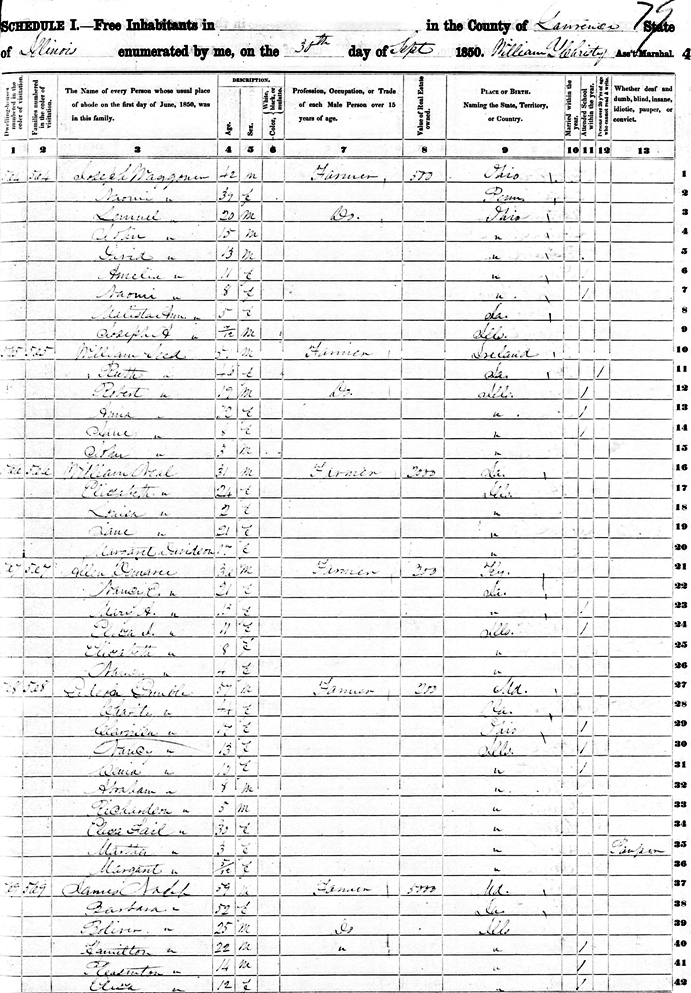 79
SCHEDULE I.—Free Inhabitants in in the County of Lawrence State
of Illinois enumerated by me, on the 30th day of Sept 1850. William Ass't Marshal. 4
Dwelling-houses numbered in the order of visitation.
Families numbered in the order of visitation.
The Name of every Person whose usual place of abode on the first day of June, 1850, was in this family.
DESCRIPTION.
Age.
Sex.
Color, White, black, or mulatto.
Profession, Occupation, or Trade of each Male Person over 15 years of age.
Value of Real Estate owned.
PLACE OF BIRTH. Naming the State, Territory, or Country.
Married within the year.
Attended School within the year.
Persons over 20 y'rs of age who cannot read & write.
Whether deaf and dumb, blind, insane, idiotic, pauper, or convict.
1 2 3 4 5 6 7 8 9 10 11 12 13
564 564 Joseph Waggoner 42 m Farmer 500 Ohio 1
Naomi " 39 f Penn 2
Lemuel " 20 m Do. Ohio 3
John " 15 m " 4
David " 13 m " 5
Amelia " 11 f " 6
Naomi " 8 f " / 7
Ann " 5 f Ia. 8
Joseph " m Ills. 9
565 565 William m Farmer Ireland 10
Ruth " f Ia. / 11
Robert " 19 m Do. Ills. / 12
Anna " f " / 13
Jane " 8 f " / 14
John " 3 m " 15
566 566 William Neal 31 m Farmer 2000 Ia. 16
Elizabeth " 24 f Ills. 17
Louisa " 2 f " 18
Jane " 21 f " 19
Margaret Davidson 17 f " 20
567 567 Allen m Farmer 300 Ky. 21
Nancy E. " f Ia. 22
Mary A. " 13 f " / 23
Eliza J. " 11 f Ills. / 24
Elizabeth " 8 f " 25
Nancy " f " 26
568 568 57 m Farmer 200 Md. 27
Charity " f 28
" 17 f Ohio / 29
Nancy " 13 f Ills. / 30
" f " / 31
Abraham " 8 m " 32
Richardson " 5 m " 33
Eliza Fail " 30 f " 34
Martha " 3 f " Pauper 35
Margaret " f " 36
569 569 James 59 m Farmer 5000 Md. 37
Barbara " 52 f 38
Boliver " 25 m Do Ills 39
Hamilton " 22 m " " / 40
Pleasanton " 14 m " / 41
" 12 f " / 42